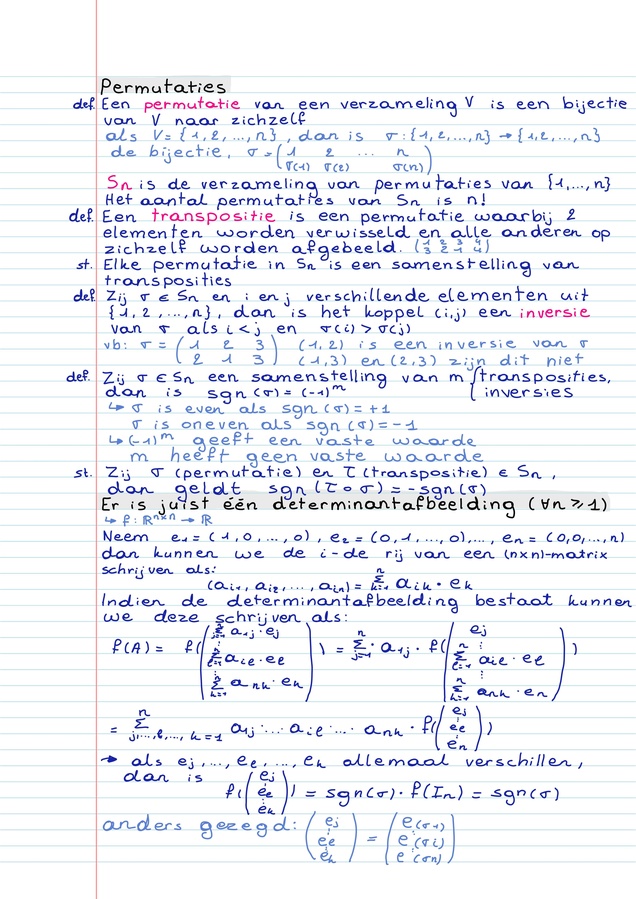 Permutaties
def. Een permutatie van een verzameling V is een bijectie
van V naar zichzelf
als V = {1, 2, ..., n}, dan is σ : {1, 2, ..., n} → {1, 2, ..., n}
de bijectie, σ = ( 1 2 ... n
σ(1) σ(2) σ(n) )
Sn is de verzameling van permutaties van {1, ..., n}
Het aantal permutaties van Sn is n!
def. Een transpositie is een permutatie waarbij 2
elementen worden verwisseld en alle anderen op
zichzelf worden afgebeeld. (1 2 3 4 / 3 2 1 4)
st. Elke permutatie in Sn is een samenstelling van
transposities
def. Zij σ ∈ Sn en i en j verschillende elementen uit
{1, 2, ..., n}, dan is het koppel (i,j) een inversie
van σ als i < j en σ(i) > σ(j)
vb: σ = ( 1 2 3 (1,2) is een inversie van σ
2 1 3 ) (1,3) en (2,3) zijn dit niet
def. Zij σ ∈ Sn een samenstelling van m { transposities,
dan is sgn(σ) = (-1)^m inversies
↳ σ is even als sgn(σ) = +1
σ is oneven als sgn(σ) = -1
↳ (-1)^m geeft een vaste waarde
m heeft geen vaste waarde
st. Zij σ (permutatie) en τ (transpositie) ∈ Sn,
dan geldt sgn(τ∘σ) = -sgn(σ)
Er is juist één determinantafbeelding (∀n ≥ 1)
↳ f : ℝ^n×n → ℝ
Neem e1 = (1, 0, ..., 0), e2 = (0, 1, ..., 0), ..., en = (0, 0, ..., n)
dan kunnen we de i-de rij van een (n×n)-matrix
schrijven als:
(ai1, ai2, ..., ain) = Σ(k=1→n) aik · ek
Indien de determinantafbeelding bestaat kunnen
we deze schrijven als:
f(A) = f( ( Σ(j=1→n) a1j · ej ⋮ Σ(ℓ=1→n) aiℓ · eℓ ⋮ Σ(k=1→n) ank · ek ) ) = Σ(j=1→n) · a1j · f( ( ej ⋮ Σ(ℓ=1→n) aiℓ · eℓ ⋮ Σ(k=1→n) ank · en ) )
= Σ(j,...,ℓ,...,k=1→n) aij · ... aiℓ ... · ank · f( ( ej ⋮ eℓ ⋮ en ) )
→ als ej, ..., eℓ, ..., ek allemaal verschillen,
dan is f( ( ej ⋮ eℓ ⋮ ek ) ) = sgn(σ) · f(In) = sgn(σ)
anders gezegd: ( ej ⋮ eℓ ⋮ ek ) = ( e(σ1) ⋮ e(σi) ⋮ e(σn) )